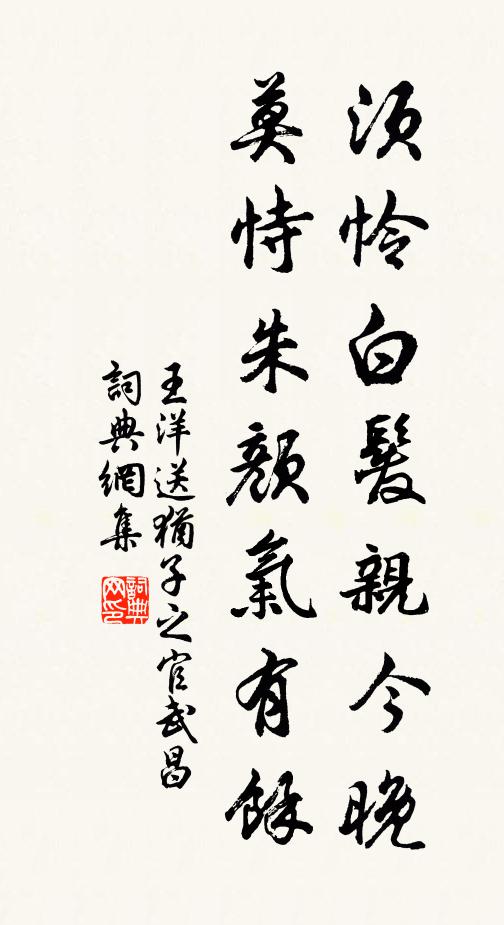 須怜白髮親今晚
莫恃朱顏氣有餘
王洋送猶子之官武昌
詞典網集
詞典
网印